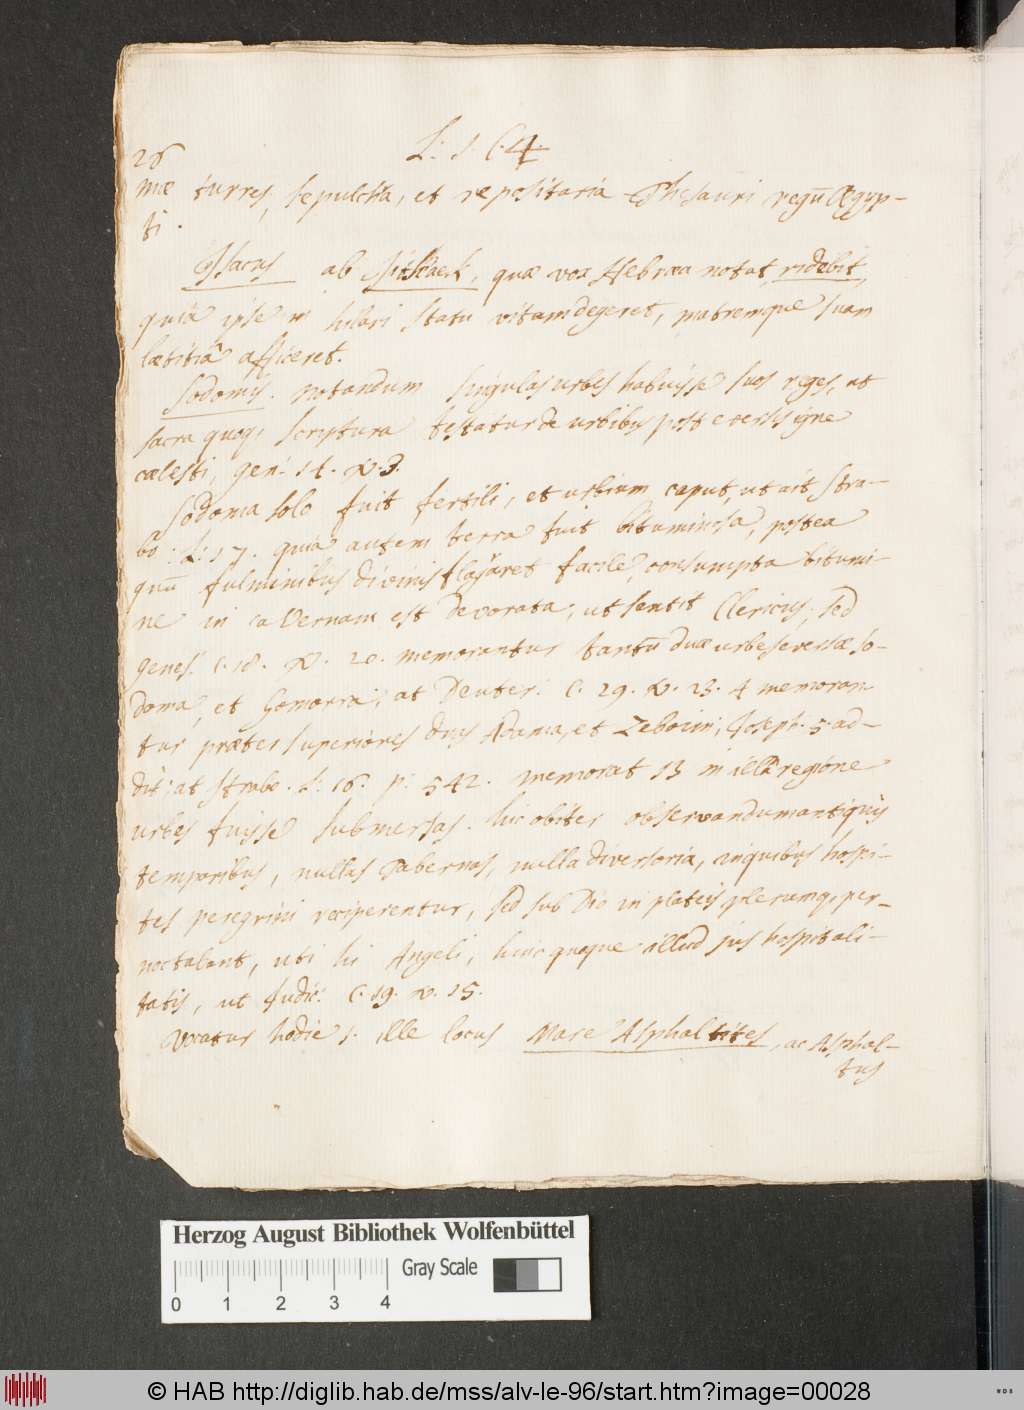 26
L: 1. C. 4.
mæ turres, sepulchra, et repositaria Thesauri regū Ægyp-
ti.
Isacus ab Jitshaek, quæ vox Hebræa notat, ridebit,
quia ipse in hilari statu vitam degeret, matremque suam
lætitiâ afficeret.
Sodomis. notandum singulas urbes habuisse suos reges, ut
sacra quoq, scriptura testatur de urbibus post eversis igne
cælesti, gen: 14. v. 3.
Sodoma solo fuit fertili, et urbium caput, ut ait Stra-
bo: L: 17. quia autem terra fuit bituminosa, postea
quū fulminibus divinis flagraret facile, consumpta bitumi-
ne in cavernam est devorata, ut sentit Clericus, sed
genes. C. 18. v. 20. memorantur tantū duæ urbes eversæ so-
doma, et Gomorra, at Deuter: C. 29. v. 23. 4 memoran
tur præter superiores duas Adama, et Zeboim, Joseph. 5 ad-
dit; at Strabo. L: 16. p: 542. memorat 13 in illâ regione
urbes fuisse submersas. hic obiter observandum antiquis
temporibus, nullas Tabernas, nulla diversoria, in quibus hospi-
tes peregrini reciperentur, sed sub Dio in plateis plerumq, per-
noctabant, uti hi Angeli, hinc quoque illud jus hospitali-
tatis, ut Judic: C. 19. v. 15.
Vocatur hodie ille locus Mare Asphaltites, ac Asphal-
tus
Herzog August Bibliothek Wolfenbüttel
Gray Scale
0 1 2 3 4
© HAB http://diglib.hab.de/mss/alv-le-96/start.htm?image=00028